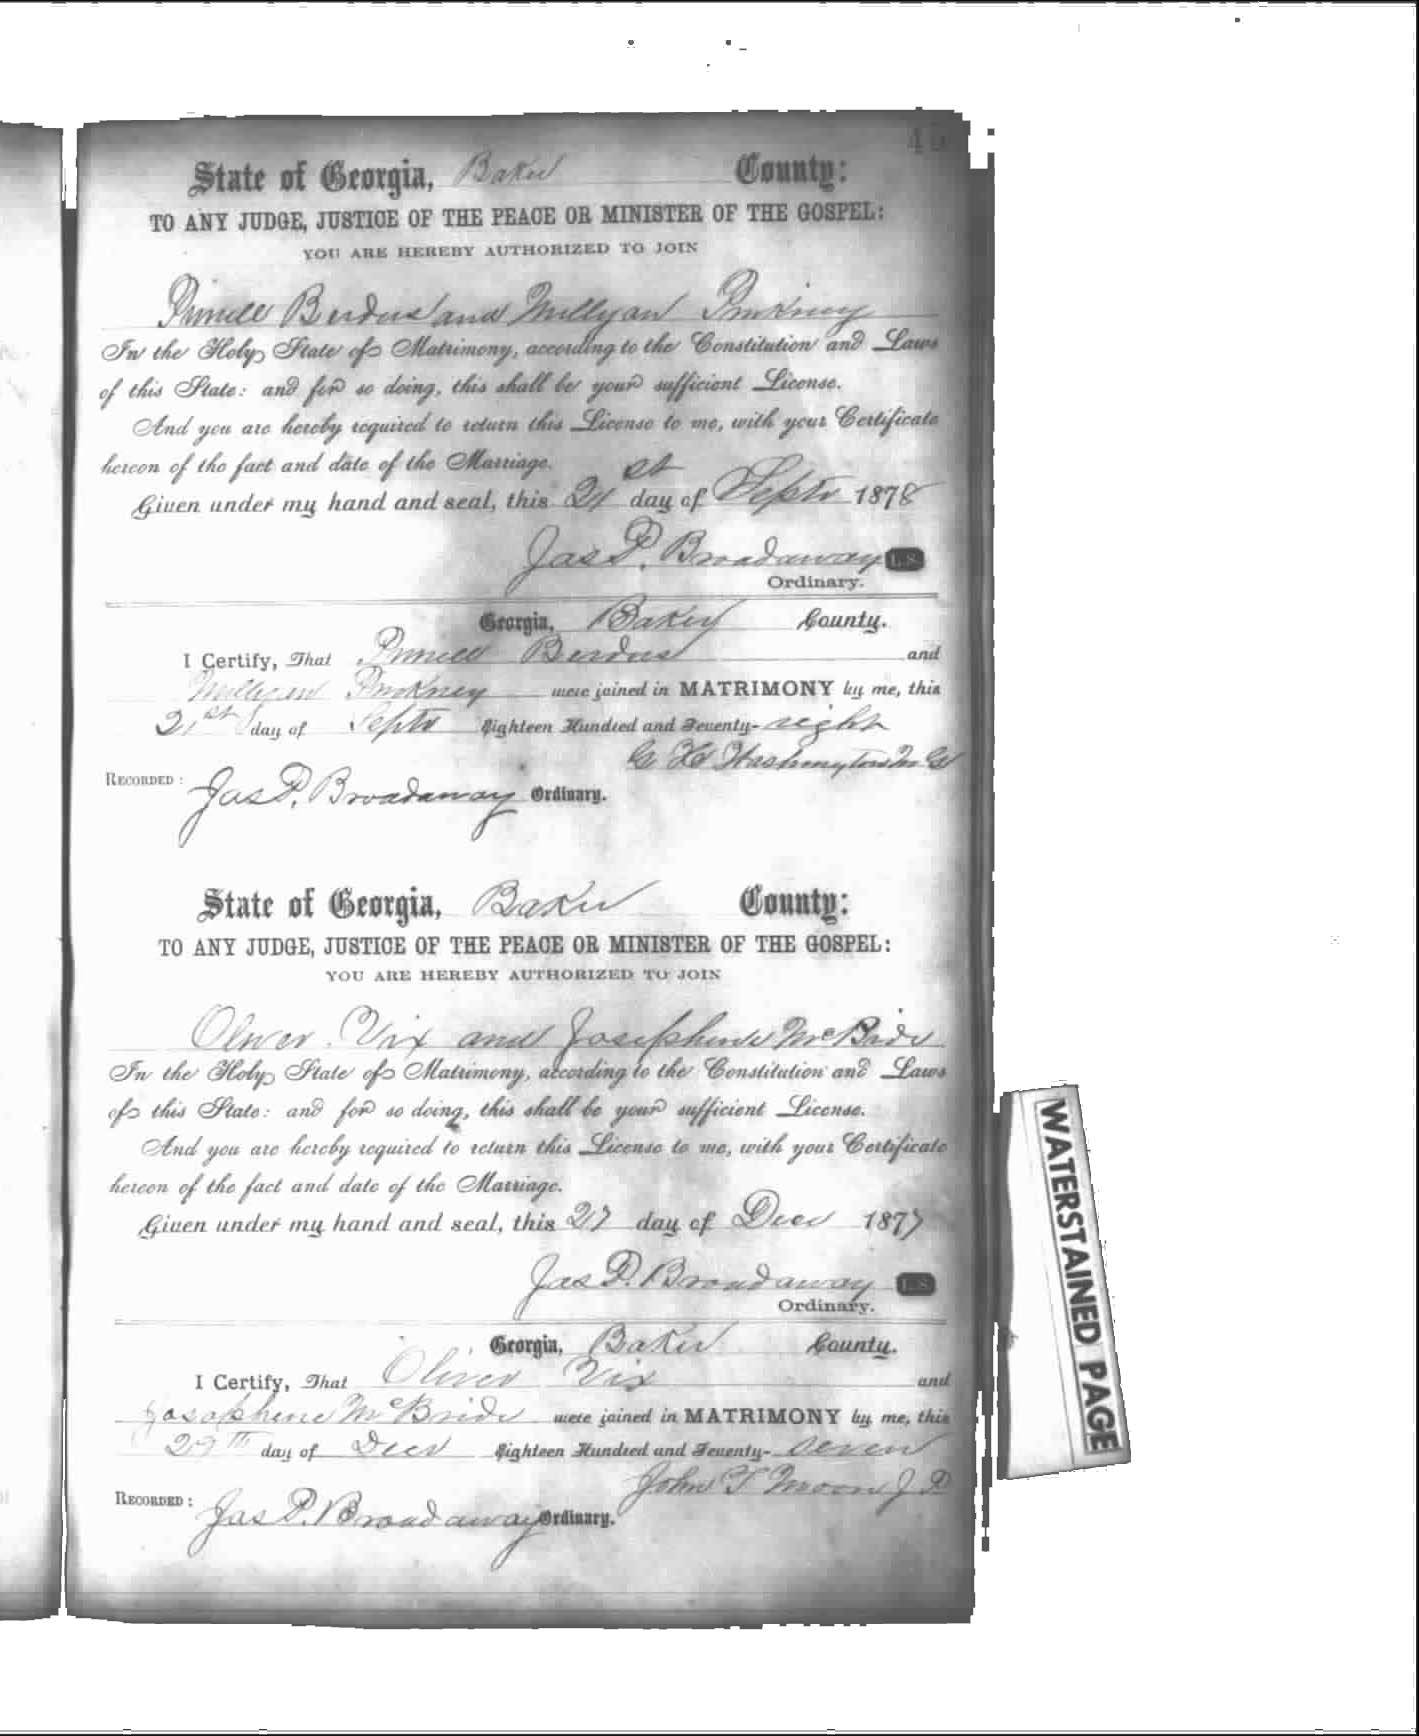 State of Georgia, Baker County:
TO ANY JUDGE, JUSTICE OF THE PEACE OR MINISTER OF THE GOSPEL:
YOU ARE HEREBY AUTHORIZED TO JOIN
and Pinkney
In the Holy State of Matrimony, according to the Constitution and Laws
of this State: and for so doing, this shall be your sufficient License.
And you are hereby required to return this License to me, with your Certificate
hereon of the fact and date of the Marriage.
Given under my hand and seal, this 21st day of Septr 1878
Jas P. Broadaway L.S.
Ordinary.
Georgia, Baker County.
I Certify, That and
Pinkney were joined in MATRIMONY by me, this
21st day of Septr Eighteen Hundred and Seventy-eight
Washington M G
RECORDED: Jas P. Broadaway Ordinary.
State of Georgia, Baker County:
TO ANY JUDGE, JUSTICE OF THE PEACE OR MINISTER OF THE GOSPEL:
YOU ARE HEREBY AUTHORIZED TO JOIN
Oliver Vix and Josephine McBride
In the Holy State of Matrimony, according to the Constitution and Laws
of this State: and for so doing, this shall be your sufficient License.
And you are hereby required to return this License to me, with your Certificate
hereon of the fact and date of the Marriage.
Given under my hand and seal, this 27 day of Decr 1877
Jas P. Broadaway L.S.
Ordinary.
Georgia, Baker County.
I Certify, That Oliver Vix and
Josephine McBride were joined in MATRIMONY by me, this
27th day of Decr Eighteen Hundred and Seventy-seven
John T Moore J P
RECORDED: Jas P. Broadaway Ordinary.
WATERSTAINED PAGE